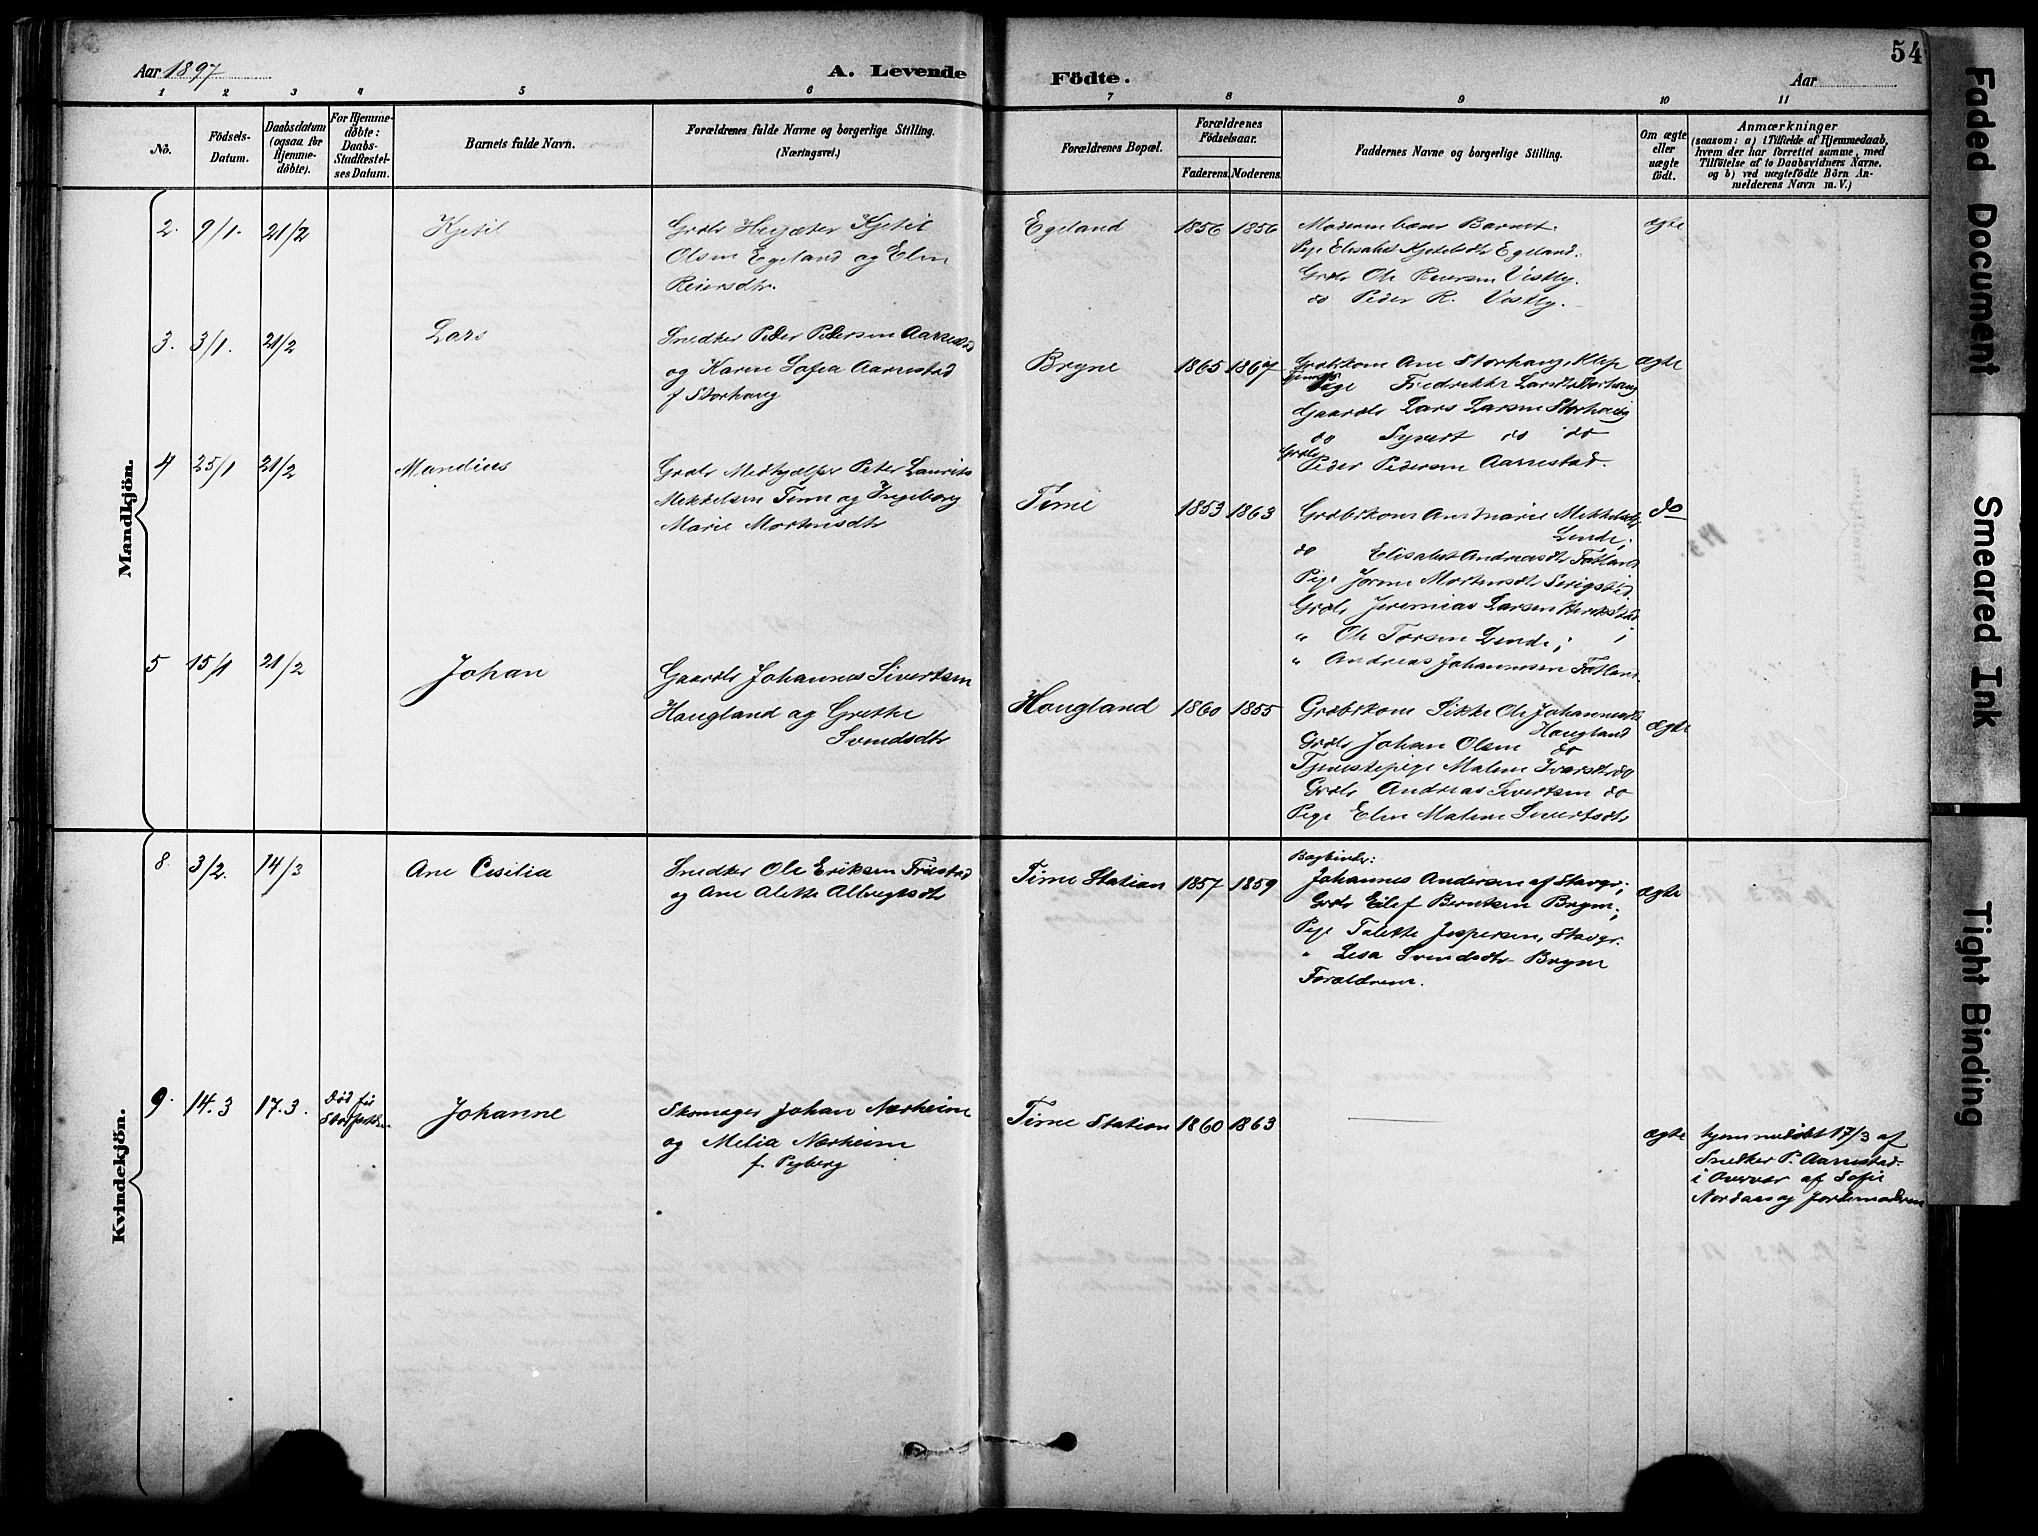 Aar 1897
A. Levende
Födte.
Aar
54
1 2 3 4 5 6 7 8 9 10 11
No.
Födsels-
Datum.
Daabsdatum
(ogsaa for
Hjemme-
döbte).
For Hjemme-
döbte:
Daabs-
Stadfæstel-
ses Datum.
Barnets fulde Navn.
Forældrenes fulde Navne og borgerlige Stilling.
(Næringsvei.)
Forældrenes Bopæl.
Forældrenes
Födselsaar.
Faderens. Moderens.
Faddernes Navne og borgerlige Stilling.
Om ægte
eller
uægte
födt.
Anmærkninger
(saasom: a) i Tilfælde af Hjemmedaab,
hvem der har forrettet samme, med
Tilföielse af to Daabsvidners Navne,
og b) ved uægtefödte Börn An-
melderens Navn m. V.)
Mandkjön.
2. 9/1. 21/2
Kjetil
Olsen Egeland og Elen
Reiersdtr.
Egeland
1856 1856
Moderen bær Barnet.
Pige Elisabet Kjetilsdtr Egeland.
Grdbr Ole Reiersen Vestly.
do Peder R. Vestly.
ægte
3. 3/1. 21/2
Lars
Snedker Peder Pedersen Aarrestad
og Karen Sofia Aarrestad
f Storhaug
Bryne
1865 1867
Grdbrkone Ane Storhaug, Klep
Pige Fredrikke Larsdtr Storhaug
Gaardbr Lars Larsen Storhaug
do Syvert do do
Grdbr
Peder Pedersen Aarrestad.
ægte
4 25/1 21/2
Mandius
Grdbr Medhjælper Peter Laurits
Mikkelsen Time og Ingeborg
Marie Mortensdtr
Time
1853 1863
Grdbrkone Anemarie Mikkelsdtr
Lende;
do Elisabet Andreasdtr Fotland
Pige Jorine Mortensdtr Serigstad
Grdbr Jeremias Larsen
" Ole Torsen Lende;
" Andreas Johannesen Fotland.
do
5 15/1 21/2
Johan
Gaardbr Johannes Sivertsen
Haugland og Grethe
Svendsdtr
Haugland
1860 1855
Grdbrkone Sikke Ole Johannesdtr
Haugland
Grdbr Johan Olsen do
Tjenestepige Malene Ivarsdtr do
Grdbr Andreas Sivertsen do
Pige Elen Malene Sivertsdtr
ægte
Kvindekjön.
8. 3/2. 14/3
Ane Cesilia
Snedker Ole Eriksen Friestad
og Ane Alette Albregtsdtr
Time Station
1857 1859
Bogbinder:
Johannes Andersen af Stavgr;
Grdbr Eilef Berntsen Bryne;
Pige Talette Jespersen, Stavgr.
" Lesa Svendsdtr Bryne
Forældrene.
ægte
9. 14.3 17.3.
Död før
Stadfæstelsen
Johanne
Skomager Johan Nærheim
og Melia Nærheim
f. Pejberg
Time Station
1860 1863
ægte
hjemmedöbt 17/3 af
Snedker P. Aarrestad
i Overvær af Sofie
Nordaas og Jordemoderen
Faded Document
Smeared Ink
Tight Binding